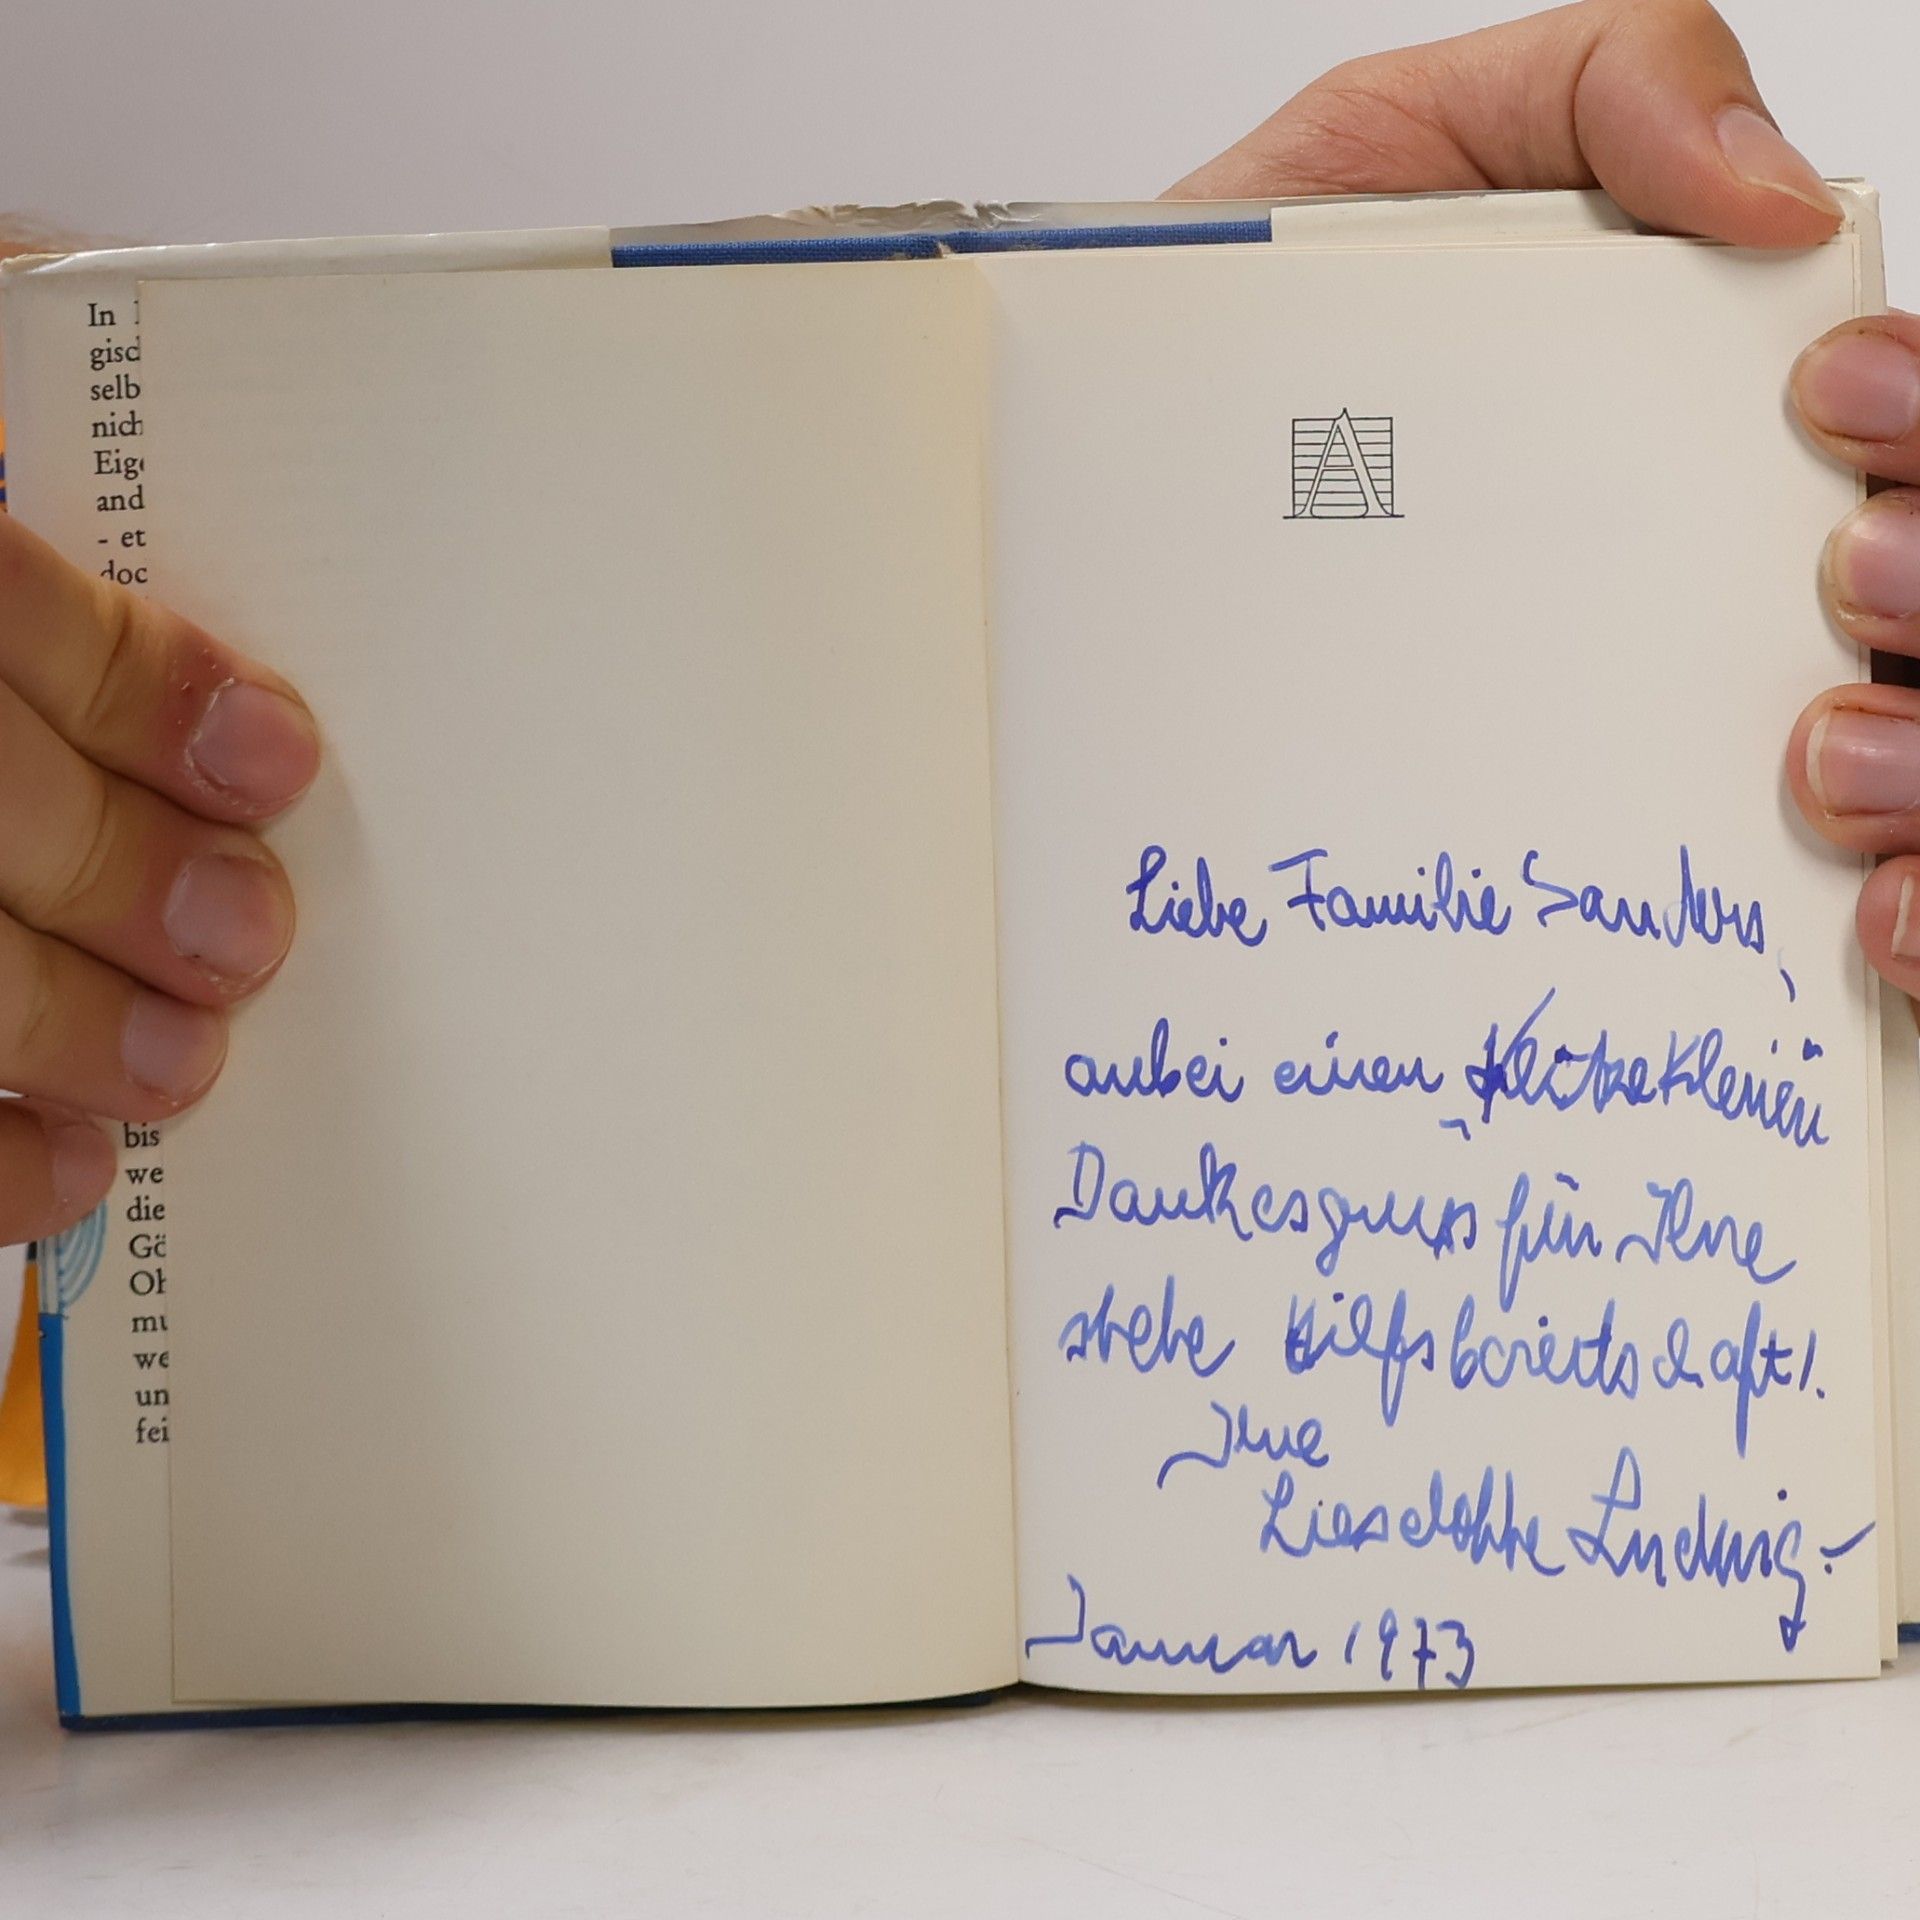 In
gisc
selb
nich
Eige
and
- et
doc
bis
we
die
Gö
Oh
mu
we
un
fei
A
Liebe Familie Sanders,
anbei einen klitzekleinen
Dankesgruss für Ihre
stete Hilfsbereitschaft!
Ihre
Lieselotte Ludwig.-
Januar 1973